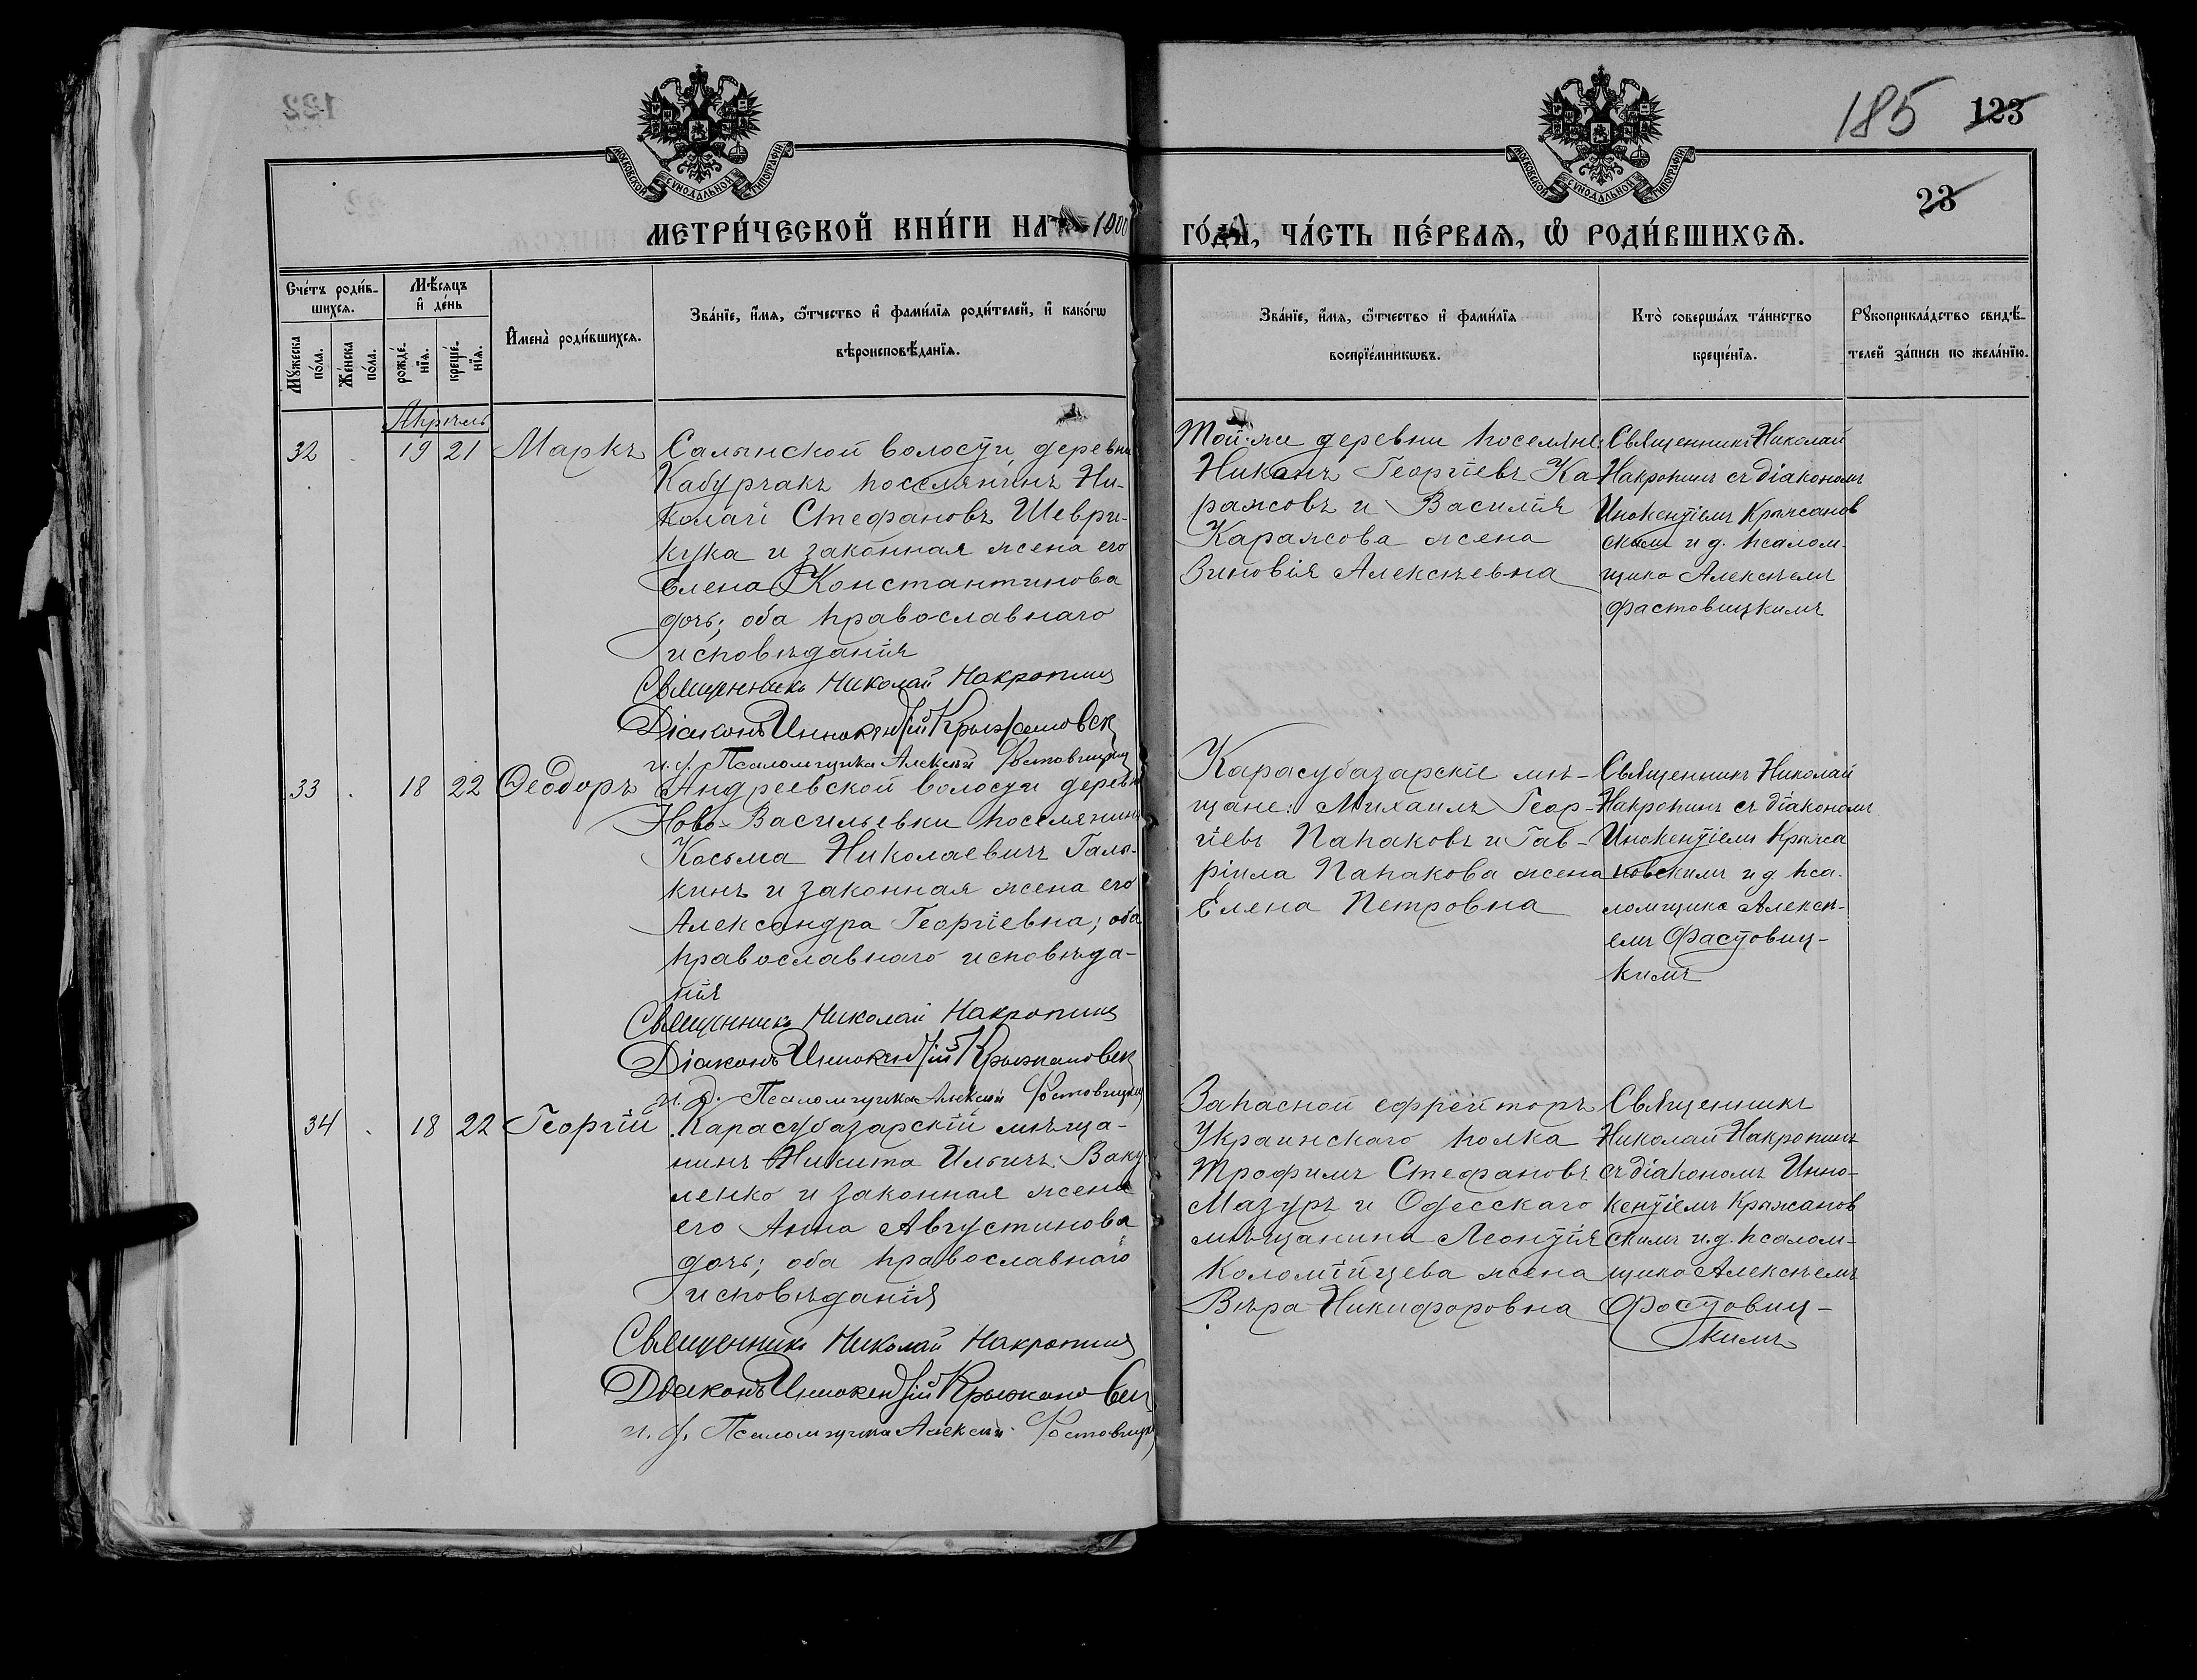 185 123
23
МОСКОВСКОЙ СУНОДАЛЬНОЙ ТИПОГРАФІИ
МОСКОВСКОЙ СУНОДАЛЬНОЙ ТИПОГРАФІИ
МЕТРИ́ЧЕСКОЙ КНИ́ГИ НА 1900
ГО́ДЪ, ЧА́СТЬ ПЕ́РВАЯ, Ѡ РОДИ́ВШИХСЯ.
Сче́тъ роди́в-
шихся.
Мꙋ́жеска по́ла.
Же́нска по́ла.
Мѣ́сяцъ и де́нь
рожде́-нїя.
креще́-нїя.
Имена̀ роди́вшихся.
Зва́нїе, и́мя, ѻ́тчество и фами́лїя роди́телей, и како́гѡ
вѣроисповѣ́данїя.
Зва́нїе, и́мя, ѻ́тчество и фами́лїя
воспрїе́мникѡвъ.
Кто̀ соверша́лъ та́инство
креще́нїя.
Рꙋкоприкла́дство свидѣ́-
телей за́писи по жела́нїю.
Апрѣль
32 19 21 Маркъ
Салынской волости, деревни
Кабурчакъ поселянинъ Ни-
колай Стефановъ Шеври-
кука и законная жена его
Елена Константинова
дочь; оба православнаго
исповѣданія
Священникъ Николай Накропинъ
Діаконъ Иннокентій Крыжановск
и. д. Псаломщика Алексѣй Фастовицкій
Той-же деревни поселяне:
Никонъ Георгіевъ Ка-
ражовъ и Василія
Каражова жена
Зиновія Алексѣевна
Священникъ Николай
Накропинъ съ діакономъ
Инокентіемъ Крыжанов
скимъ и д. псалом-
щика Алексѣемъ
Фастовицкимъ
33 18 22 Ѳеодоръ
Андреевской волости деревни
Ново-Васильевки поселянинъ
Косьма Николаевичъ Галы-
кинъ и законная жена его
Александра Георгіевна; оба
православнаго исповѣда-
нія
Священникъ Николай Накропинъ
Діаконъ Иннокентій Крыжановск
и. д. Псаломщика Алексѣй Фастовицкій
Карасубазарскіе мѣ-
щане: Михаилъ Геор-
гіевъ Папаковъ и Гав-
ріила Папакова жена
Елена Петровна
Священникъ Николай
Накропинъ съ діакономъ
Инокентіемъ Крыжа
новскимъ и д. пса-
ломщика Алексѣ-
емъ Фастовиц-
кимъ
34 18 22 Георгій
Карасубазарскій мѣща-
нинъ Никита ИльичъВаку
ленко и законная жена
его Анна Августинова
дочь; оба православнаго
исповѣданія
Священникъ Николай Накропинъ
Діаконъ Иннокентій Крыжановск
и. д. Псаломщика Алексѣй Фастовицкій
Запасной ефрейторъ
Украинскаго полка
Трофимъ Стефановъ
Мазуръ и Одесскаго
мѣщанина Леонтія
Коломійцева жена
Вѣра Никифоровна
Священникъ
Николай Накропинъ
съ діакономъ Инно-
кентіемъ Крыжанов
скимъ и.д. псалом-
щика Алексѣемъ
Фастовиц-
кимъ